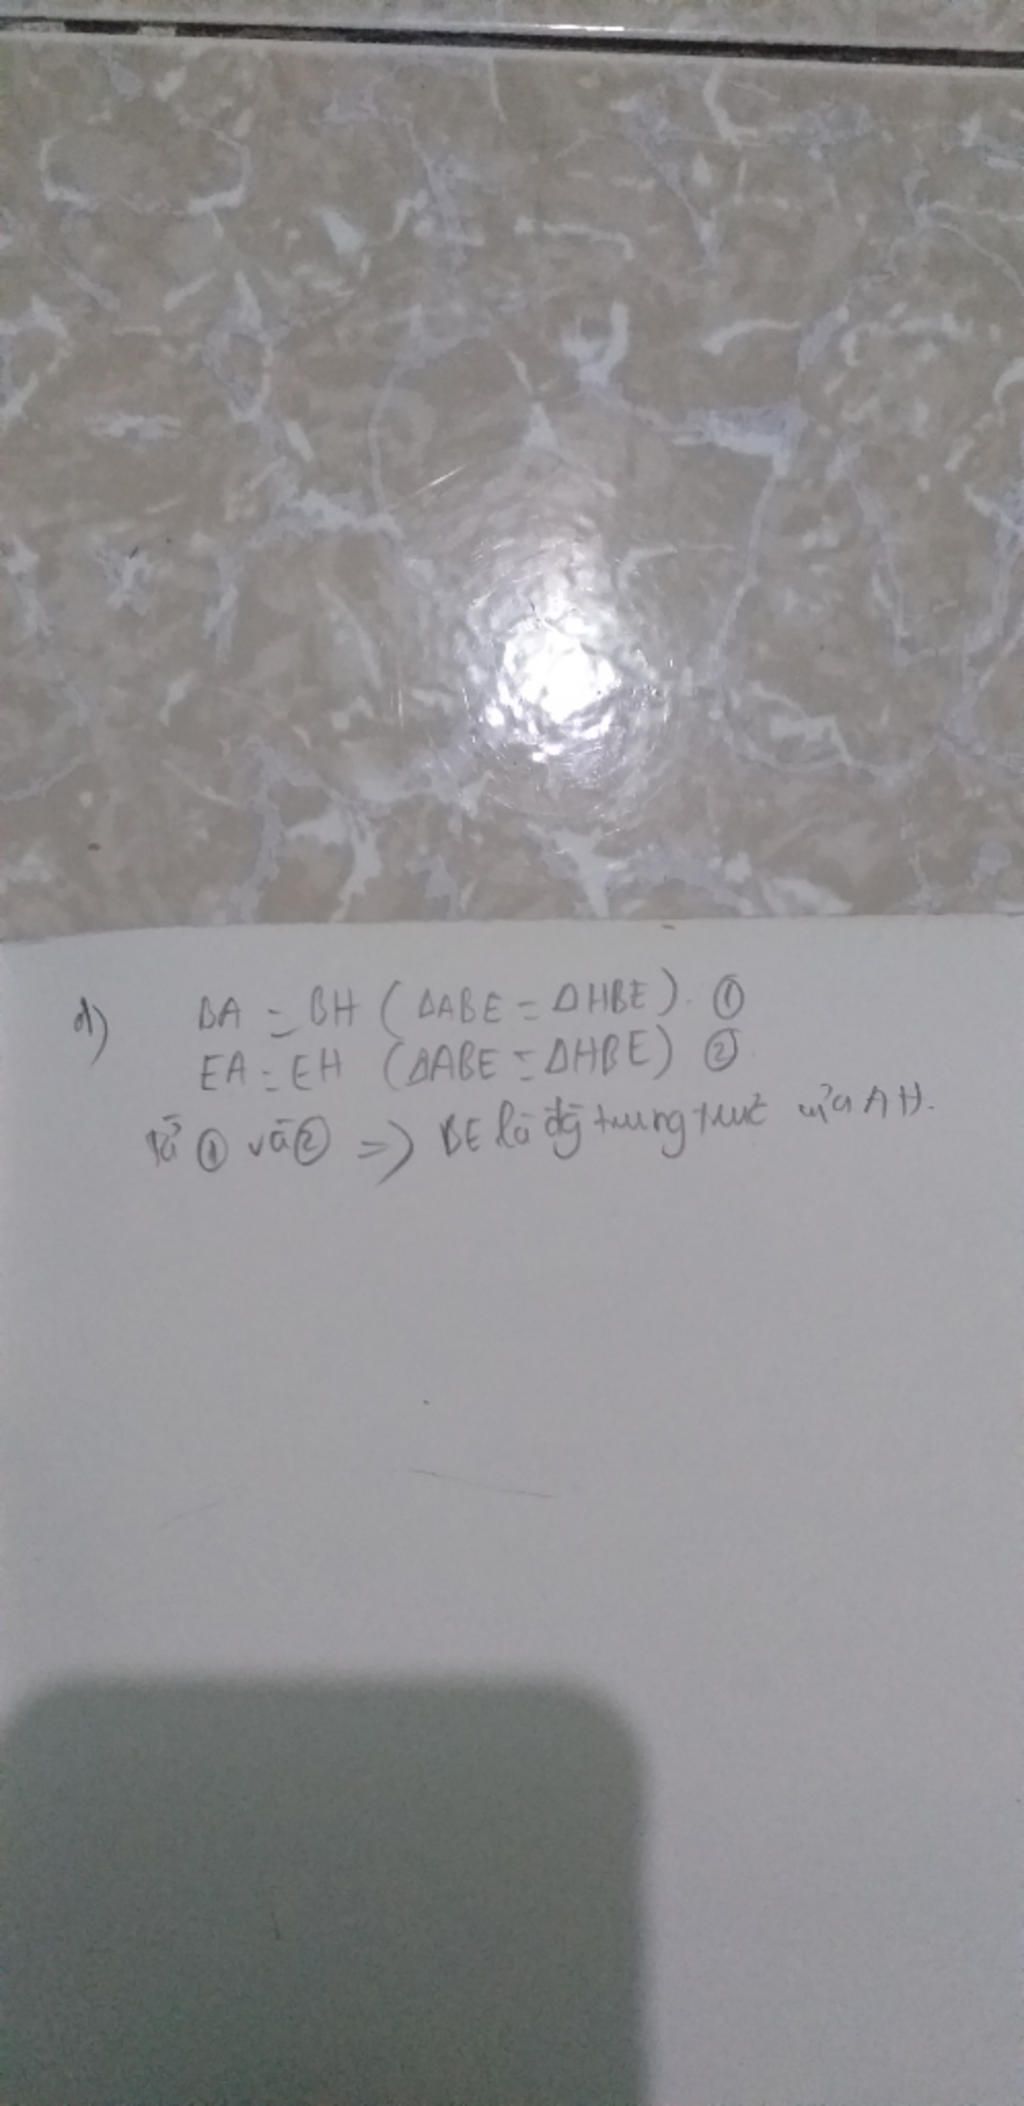 d) BA = BH (ΔABE = ΔHBE). ①
EA = EH (ΔABE = ΔHBE) ②
Từ ① và ② => BE là đg trung trực của AH.